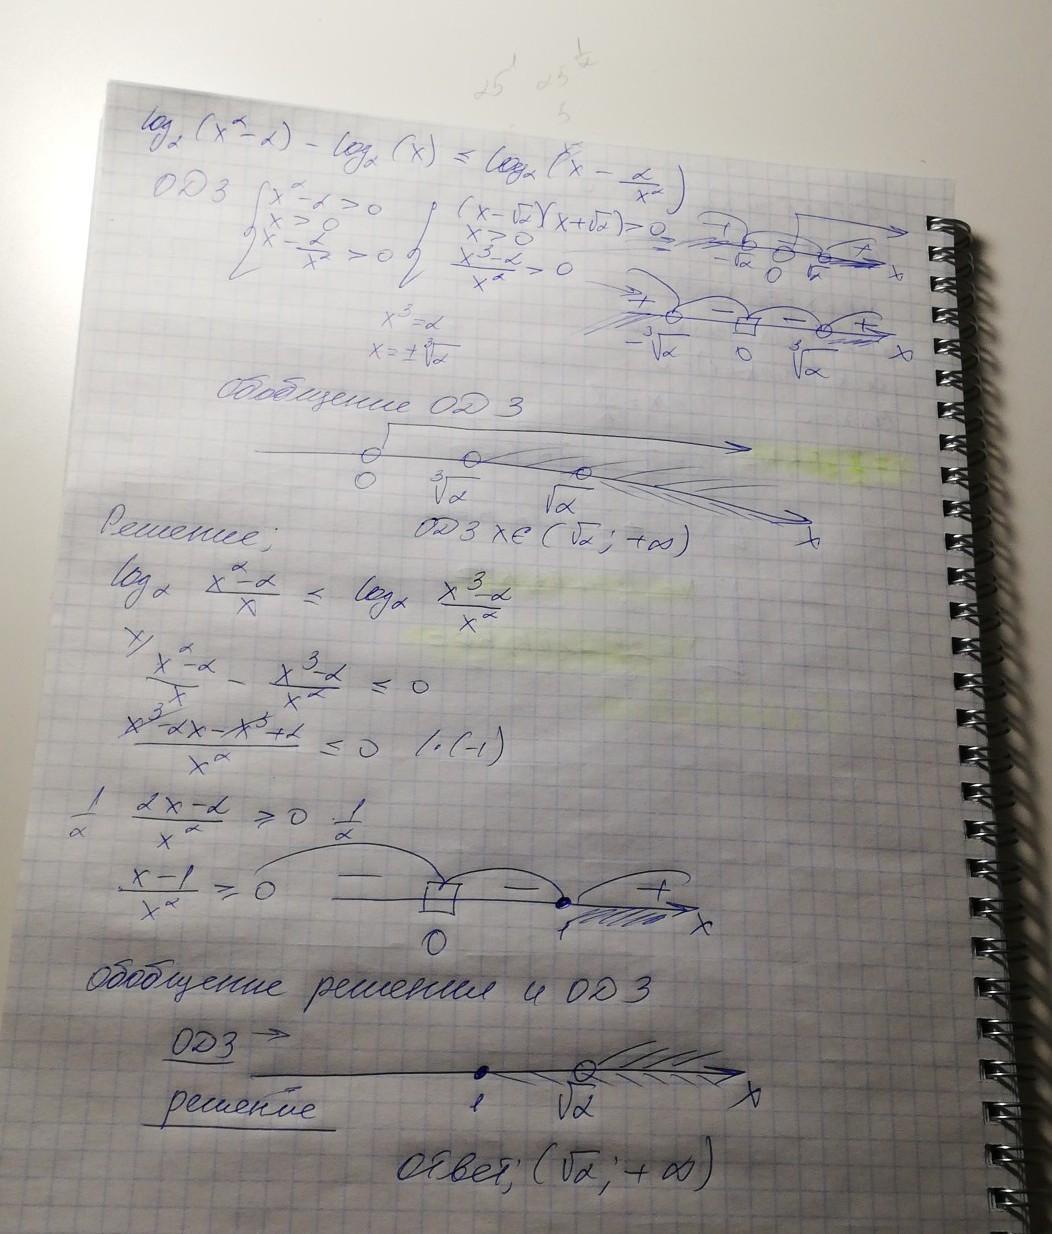 log₂(x²-2) - log₂(x) ≤ log₂(x - 2/x²)
ОДЗ { x²-2>0 { (x-√2)(x+√2)>0
x>0 x>0
x - 2/x² > 0 (x³-2)/x² > 0
+ -√2 0 √2 + x
x³=2
x=±³√2
+ - - +
-³√2 0 ³√2 x
Обобщение ОДЗ
0 ³√2 √2 x
Решение; ОДЗ x∈(√2; +∞)
log₂ (x²-2)/x ≤ log₂ (x³-2)/x²
x/ (x²-2)/x - (x³-2)/x² ≤ 0
(x³-2x-x³+2)/x² ≤ 0 /·(-1)
1/2 (2x-2)/x² ≥ 0 ·1/2
(x-1)/x² ≥ 0
- - +
0 1 x
Обобщение решения и ОДЗ
ОДЗ →
решение 1 √2 x
ответ; (√2; +∞)